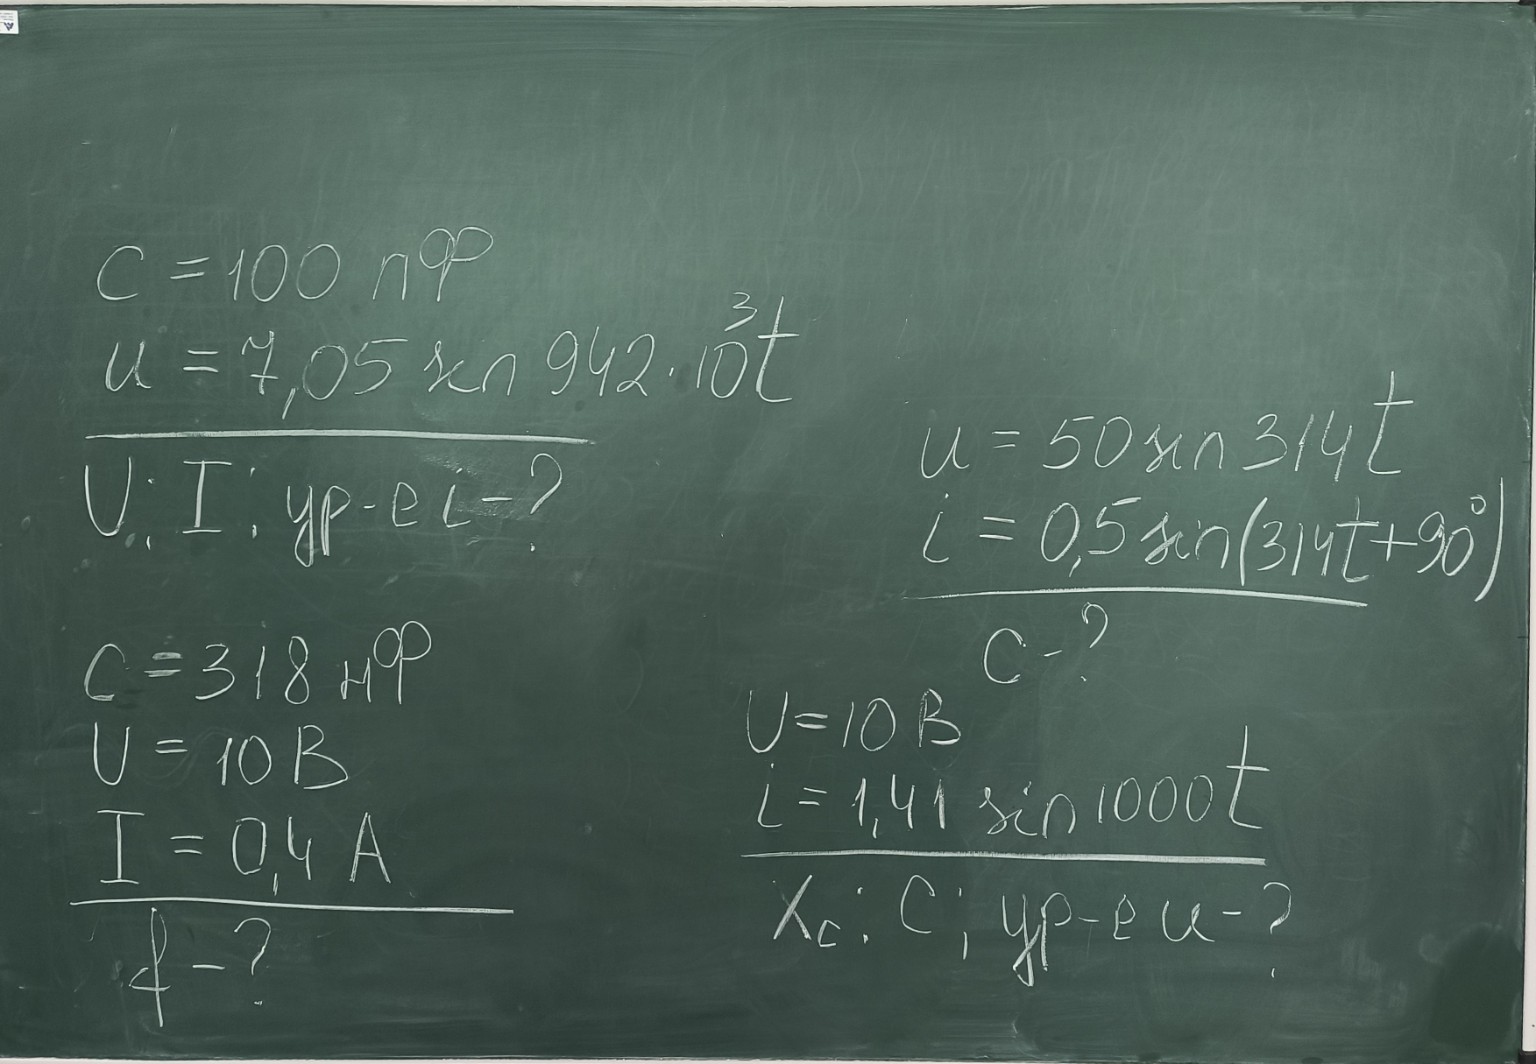 C = 100 пФ
u = 7,05 sin 942·10³t
U; I; ур-е i-?
C = 318 нФ
U = 10 В
I = 0,4 А
f - ?
u = 50 sin 314t
i = 0,5 sin(314t+90°)
C-?
U=10 В
i = 1,41 sin 1000t
Xc; C; ур-е u-?